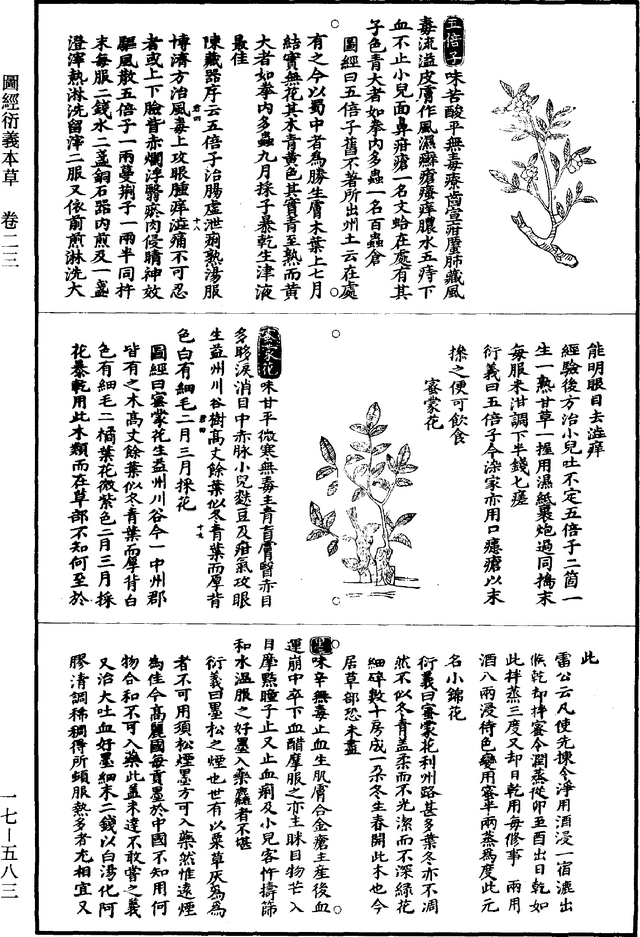 圖經衍義本草　卷二三
五倍子　味苦酸平無毒療齒宣疳䘌肺藏風
毒流溢皮膚作風濕癬瘡瘙痒膿水五痔下
血不止小兒面鼻疳瘡一名文蛤在處有其
子色青大者如拳内多蟲一名百蟲倉
圖經曰五倍子舊不著所出州土云在處
有之今以蜀中者為勝生膚木葉上七月
結實無花其木青黄色其實青至熟而黄
大者如拳内多蟲九月採子暴乾生津液
最佳
陳藏器序云五倍子治腸虛泄痢熟湯服
博濟方治風毒上攻眼腫痒澁痛不可忍
者或上下瞼皆赤爛浮瞖瘀肉侵睛神效
驅風散五倍子一兩蔓荆子一兩半同杵
末每服二錢水二盞銅石器内煎及一盞
澄滓熱淋洗留滓二服又依前煎淋洗大
能明眼目去澁痒
經驗後方治小兒吐不定五倍子二箇一
生一熟甘草一握用濕紙裹炮過同擣末
每服米泔調下半錢七瘥
衍義曰五倍子今染家亦用口瘡以末
摻之便可飲食
蜜蒙花
蜜蒙花　味甘平微寒無毒主青盲膚瞖赤目
多眵淚消目中赤脉小兒麩豆及疳氣攻眼
生益州川谷樹高丈餘葉似冬青葉而厚背
色白有細毛二月三月採花
圖經曰蜜蒙花生益州川谷今一中州郡
皆有之木高丈餘葉似冬青葉而厚背白
色有細毛二橘葉花微紫色二月三月採
花暴乾用此木類而在草部不知何至於
此
雷公云凡使先揀令淨用酒浸一宿漉出
候乾却拌蜜令潤蒸從卯至酉出日乾如
此拌蒸三度又却日乾用每修事　兩用
酒八兩浸待色變用蜜半兩蒸為度此元
名小錦花
衍義曰蜜蒙花利州路甚多葉冬亦不凋
然不似冬青蓋柔而不光潔而不深綠花
細碎數十房成一朵冬生春開此木也今
居草部恐未盡
味辛無毒止血生肌膚合金瘡主産後血
運崩中卒下血醋摩服之亦主眯目物芒入
目摩點瞳子上又止血痢及小兒客忤擣篩
和水溫服之好墨入藥麤者不堪
衍義曰墨松之煙也世有以粟草灰爲為
者不可用須松煙墨方可入藥然惟遠煙
為佳今高麗國每貢墨於中國不知用何
物合和不可入藥此蓋未達不敢嘗之義
又治大吐血好墨細末二錢以白湯化阿
膠清調稀稠得所頓服熱多者尤相宜又
一七－五八三